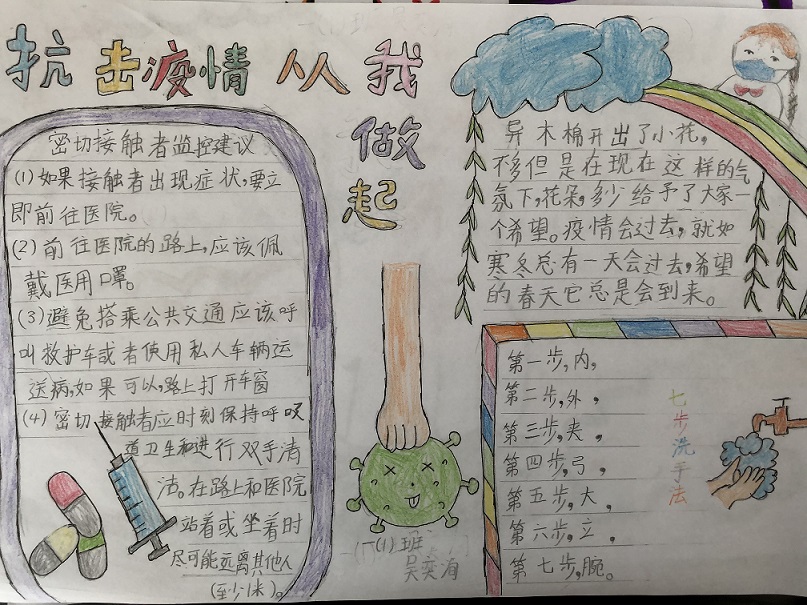 抗击疫情 从我
做
起
密切接触者监控建议
(1)如果接触者出现症状,要立
即前往医院。
(2)前往医院的路上,应该佩
戴医用口罩。
(3)避免搭乘公共交通应该呼
叫救护车或者使用私人车辆运
送病,如果可以,路上打开车窗
(4)密切接触者应时刻保持呼吸
道卫生和进行双手清
洁。在路上和医院
站着或坐着时
尽可能远离其他人
(至少1米)。
异木棉开出了小花,
不多但是在现在这样的气
氛下,花朵,多少给予了大家一
个希望。疫情会过去,就如
寒冬总有一天会过去,希望
的春天它总是会到来。
七步洗手法
第一步,内,
第二步,外,
第三步,夹,
第四步,弓,
第五步,大,
第六步,立,
第七步,腕。
(1)班
吴奕